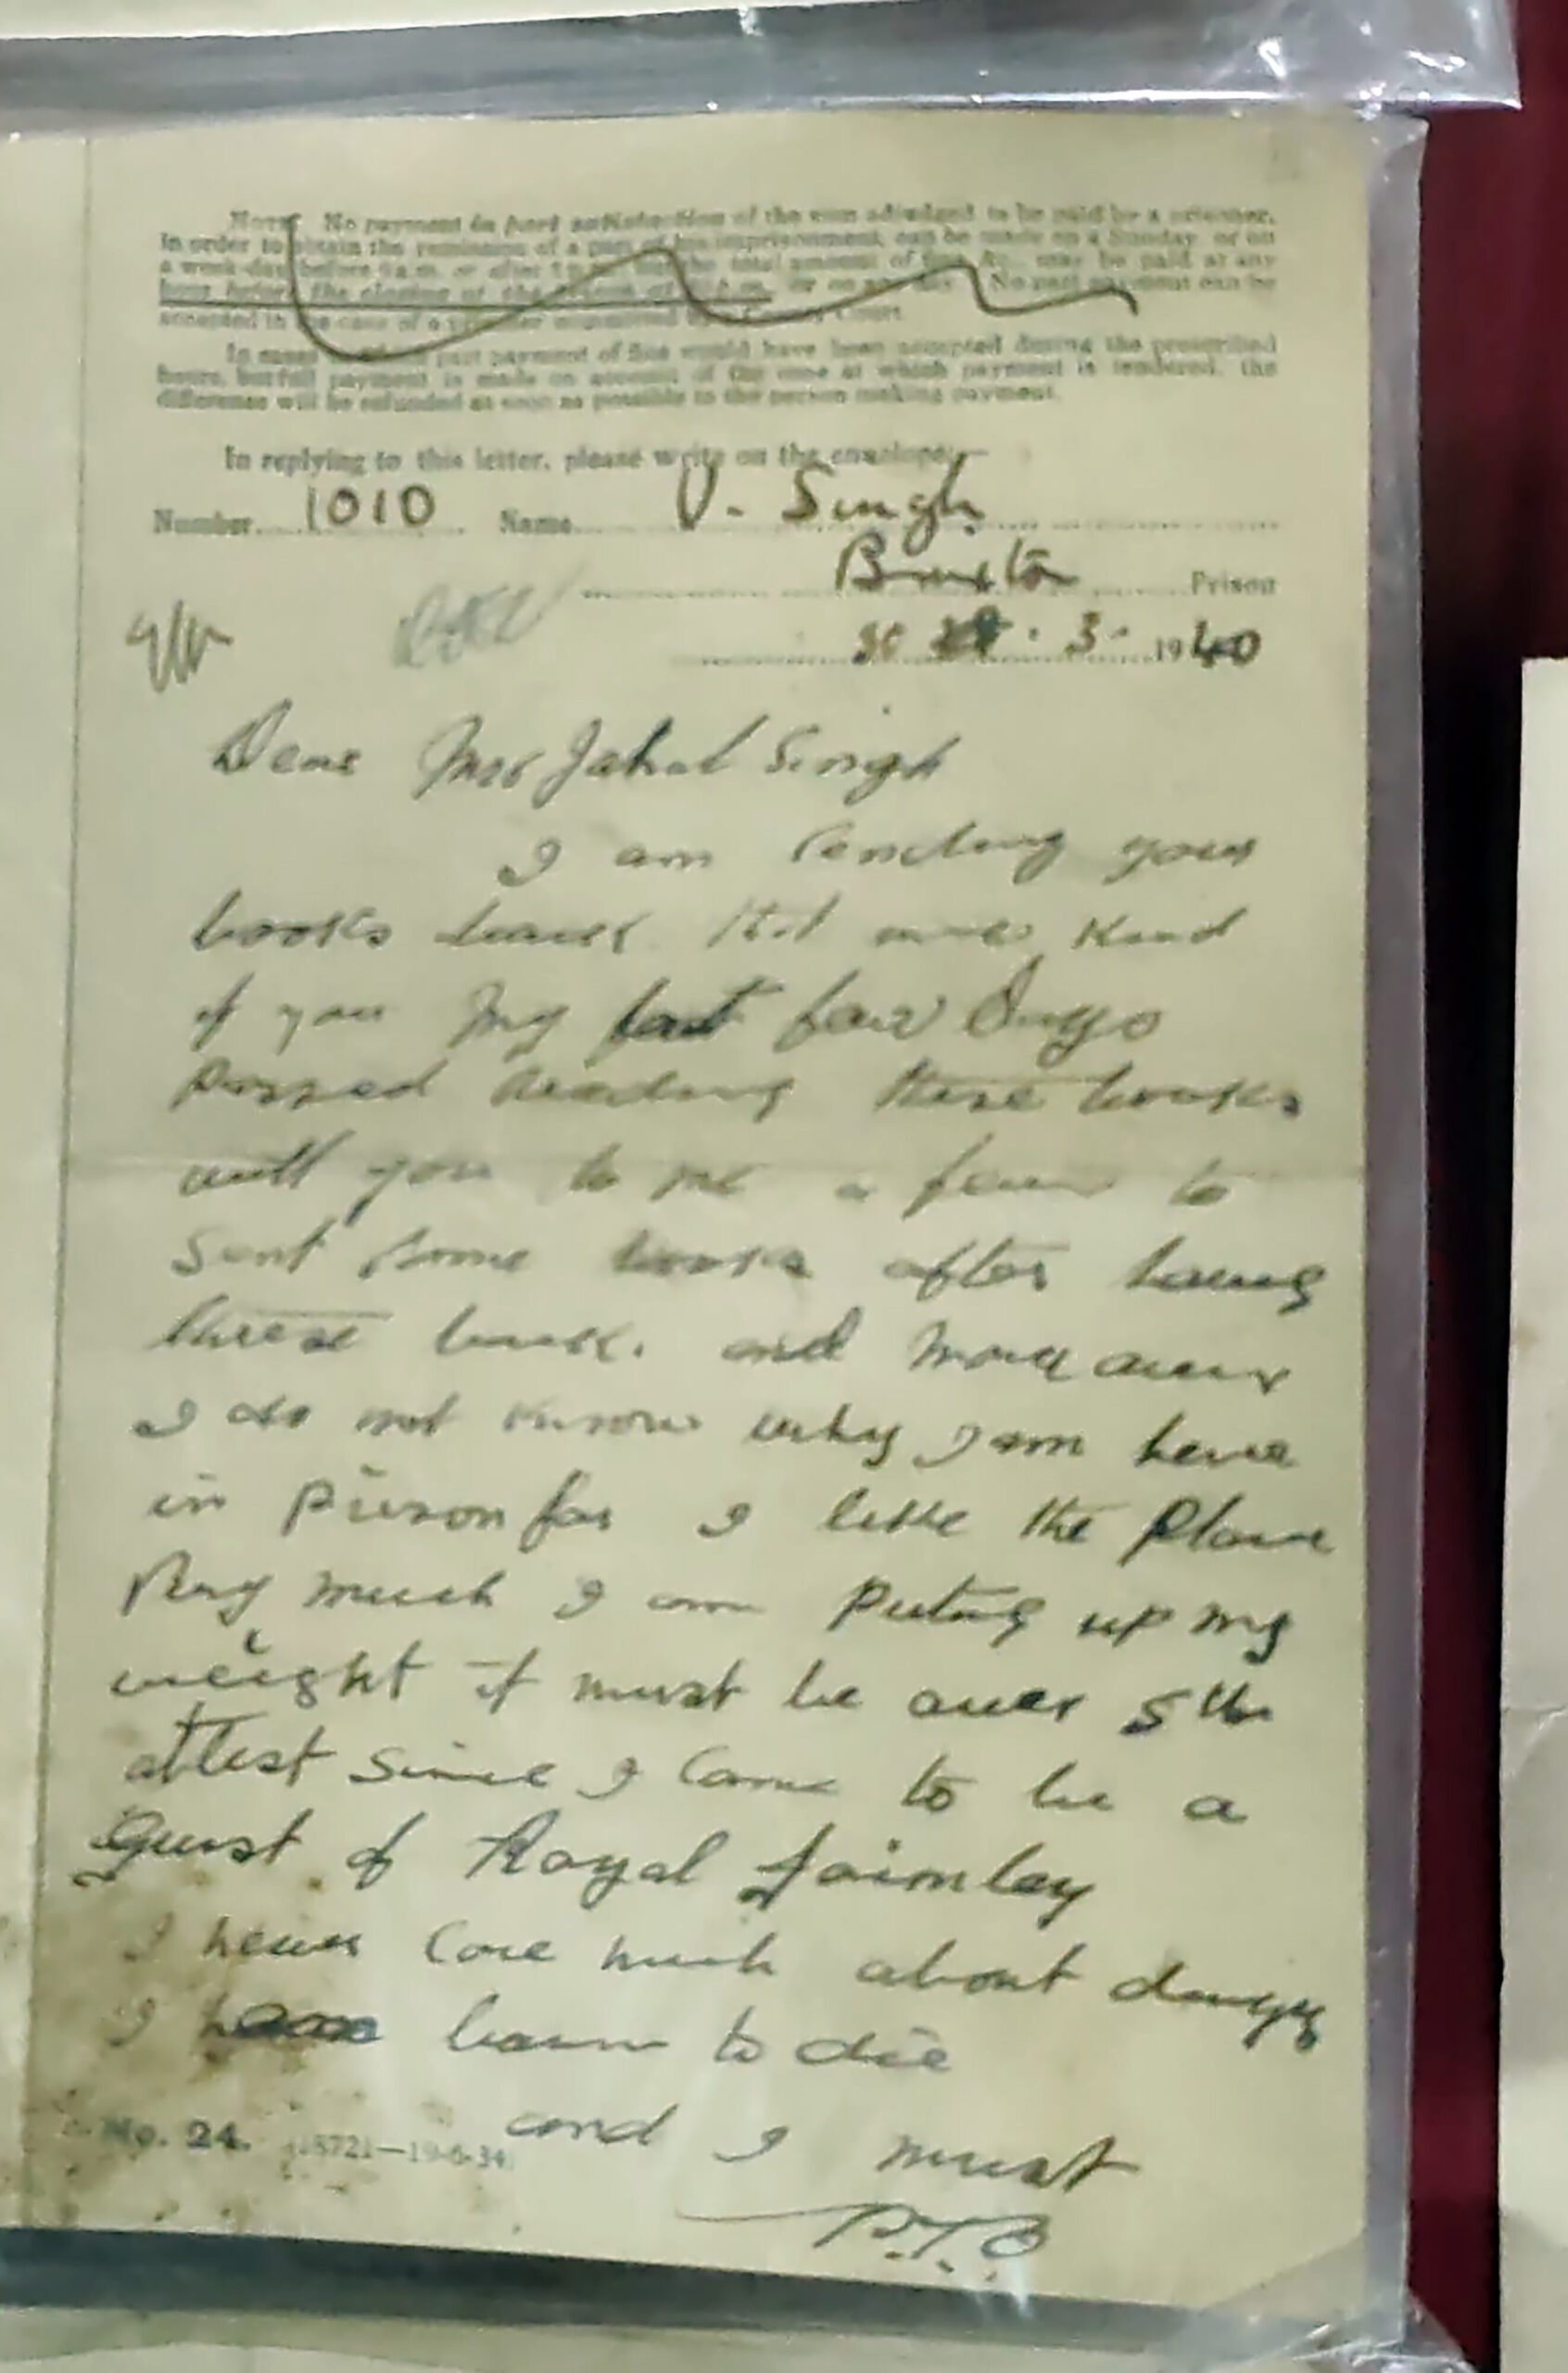 NOTE. No payment in part satisfaction of the sum adjudged to be paid by a prisoner,
in order to obtain the remission of a part of his imprisonment, can be made on a Sunday, or on
a week-day before 9 a.m. or after the total amount of may be paid at any
hour before the closing of the prison at or on any day. No part payment can be
accepted in the case of a prisoner County Court.
In cases part payment of fine would have been accepted during the prescribed
hours, but full payment is made on account of the time at which payment is tendered, the
difference will be refunded as soon as possible to the person making payment.
In replying to this letter, please write on the envelope:—
Number 1010 Name U. Singh
Brixton Prison
30 . 3 . 1940
Dear Mr Jahal Singh
I am sending your
books back that kind
of you My few Days
Passed reading these books
will you to me a to
Sent some books after having
these back. and more over
I do not know why I am here
in Prison for I like the Place
Very much I am Puting up my
weight it must be over 5 lb
atlest since I came to be a
Guest of Royal faimley
I never care much about danger
I born to die
and I must
P.T.O
No. 24. (18721—19-6-34)